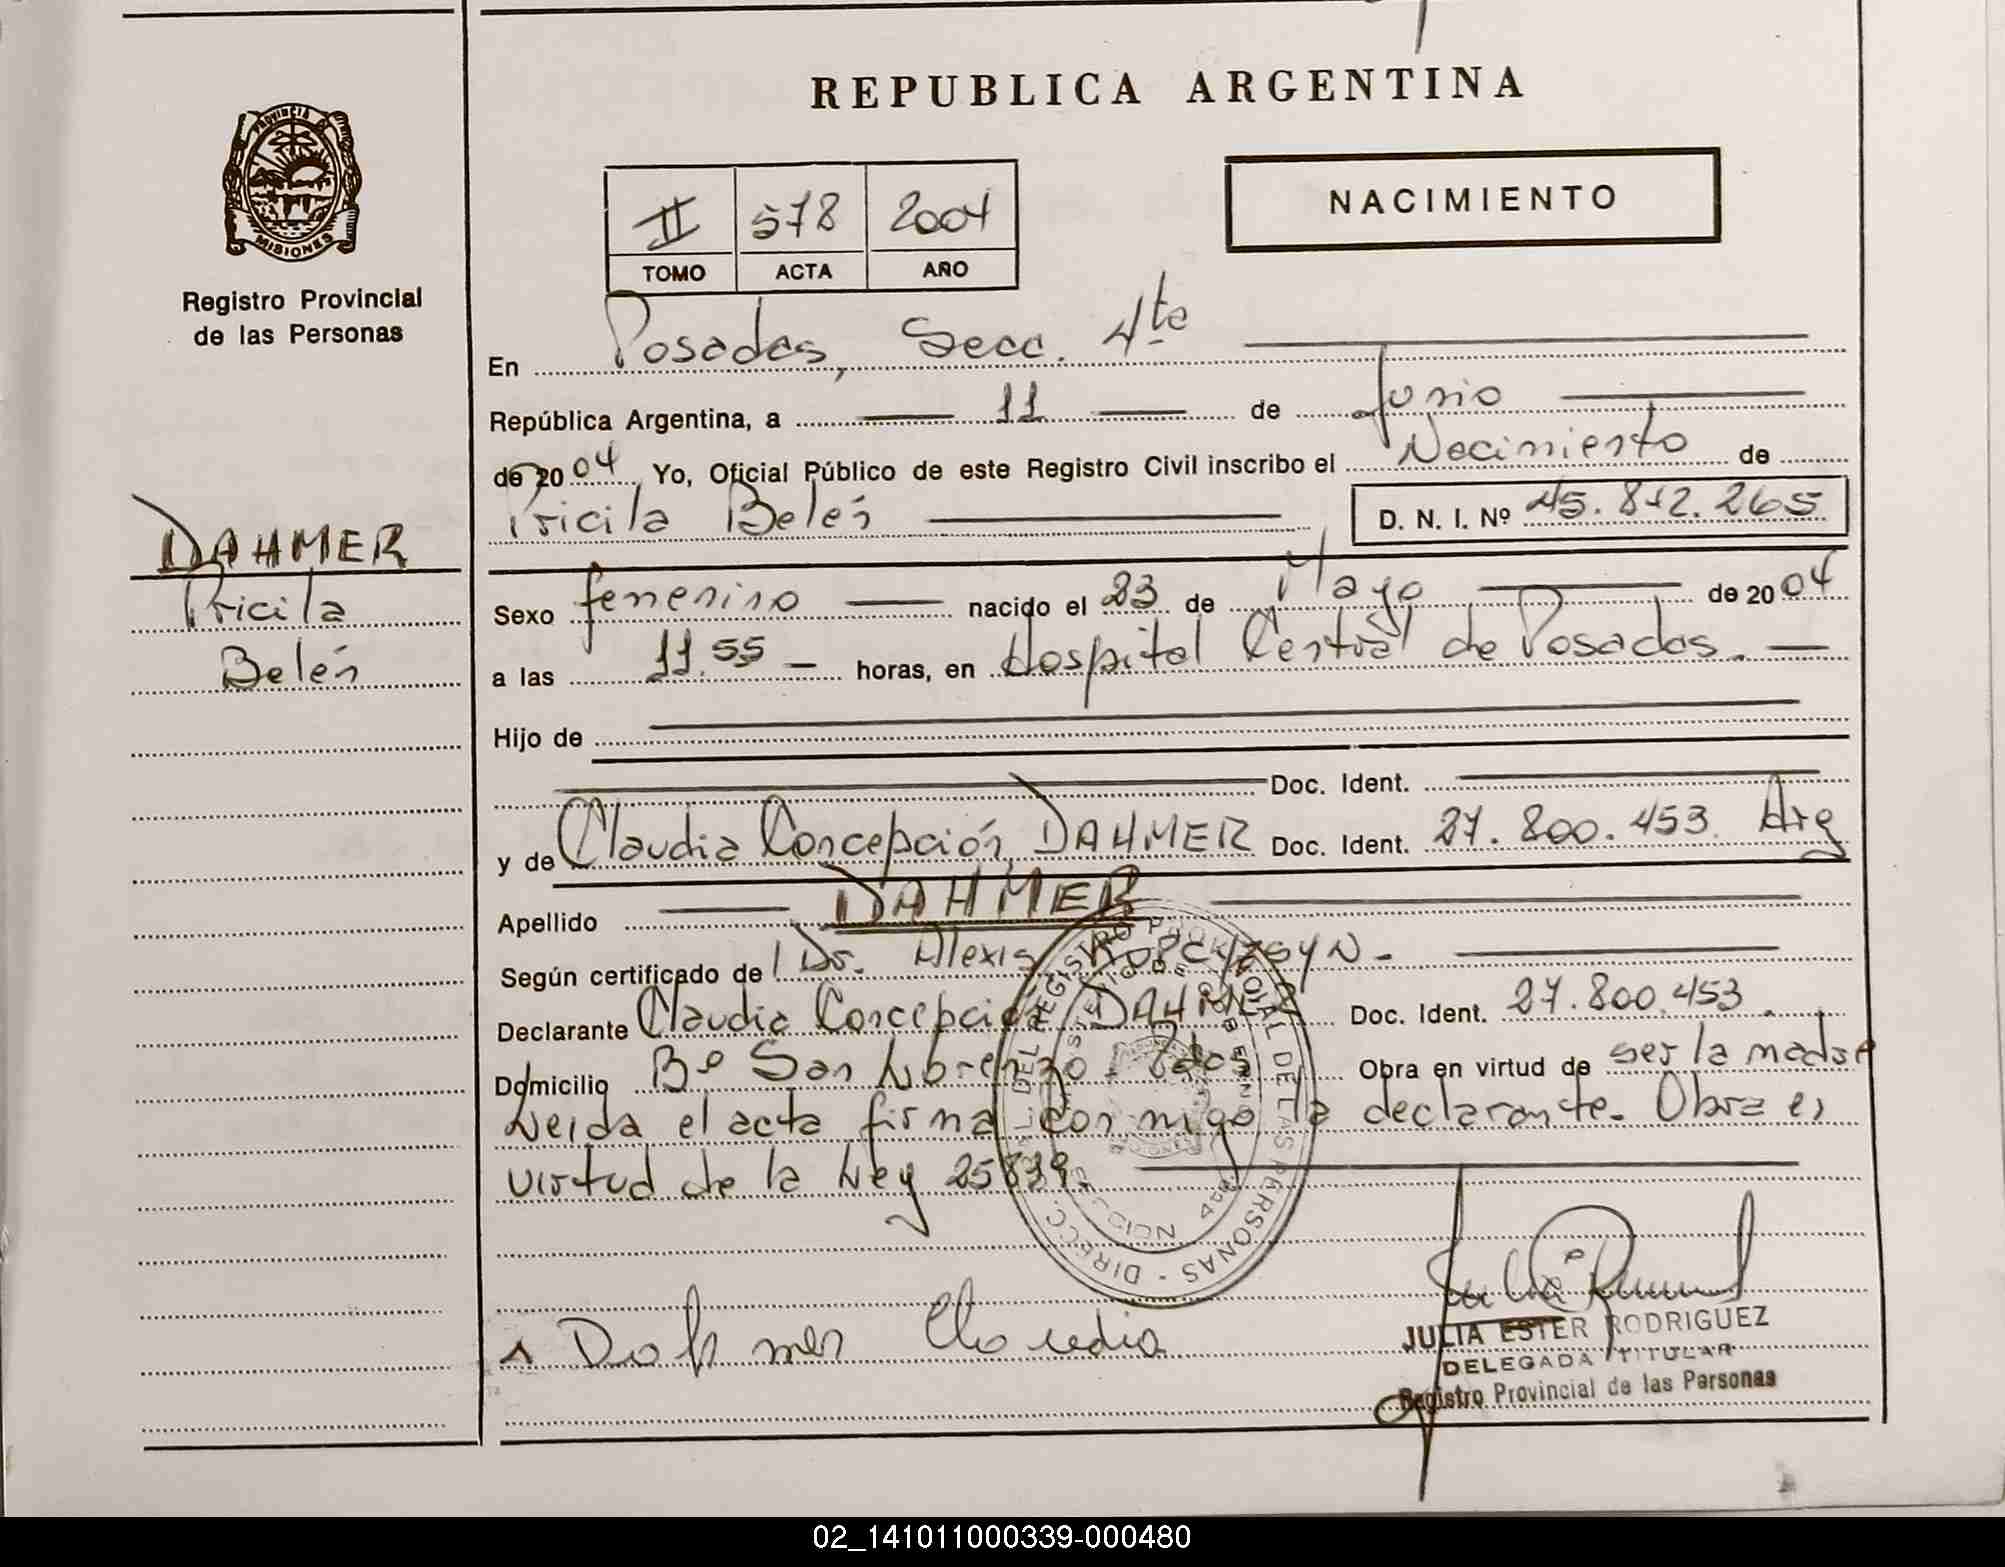 REPUBLICA ARGENTINA
NACIMIENTO
II 578 2004
TOMO ACTA AÑO
PROVINCIA DE
MISIONES
Registro Provincial
de las Personas
DAHMER
Pricila
Belén
En Posadas, Secc. 4ta
República Argentina, a 11 de Junio
de 2004 Yo, Oficial Público de este Registro Civil inscribo el Nacimiento de
Pricila Belén D. N. I. Nº 45.812.265
Sexo femenino nacido el 23 de Mayo de 2004
a las 11.55 horas, en Hospital Central de Posadas.
Hijo de
Doc. Ident.
y de Claudia Concepción DAHMER Doc. Ident. 27.800.453 Arg
Apellido DAHMER
Según certificado de Dr. Alexis
Declarante Claudia Concepción DAHMER Doc. Ident. 27.800.453
Domicilio Bº San Lorenzo - Pdas Obra en virtud de ser la madre
Leida el acta firma conmigo la declarante. Obra en
virtud de la Ley
Dahmer Claudia
JULIA ESTER RODRIGUEZ
DELEGADA TITULAR
Registro Provincial de las Personas
02_141011000339-000480